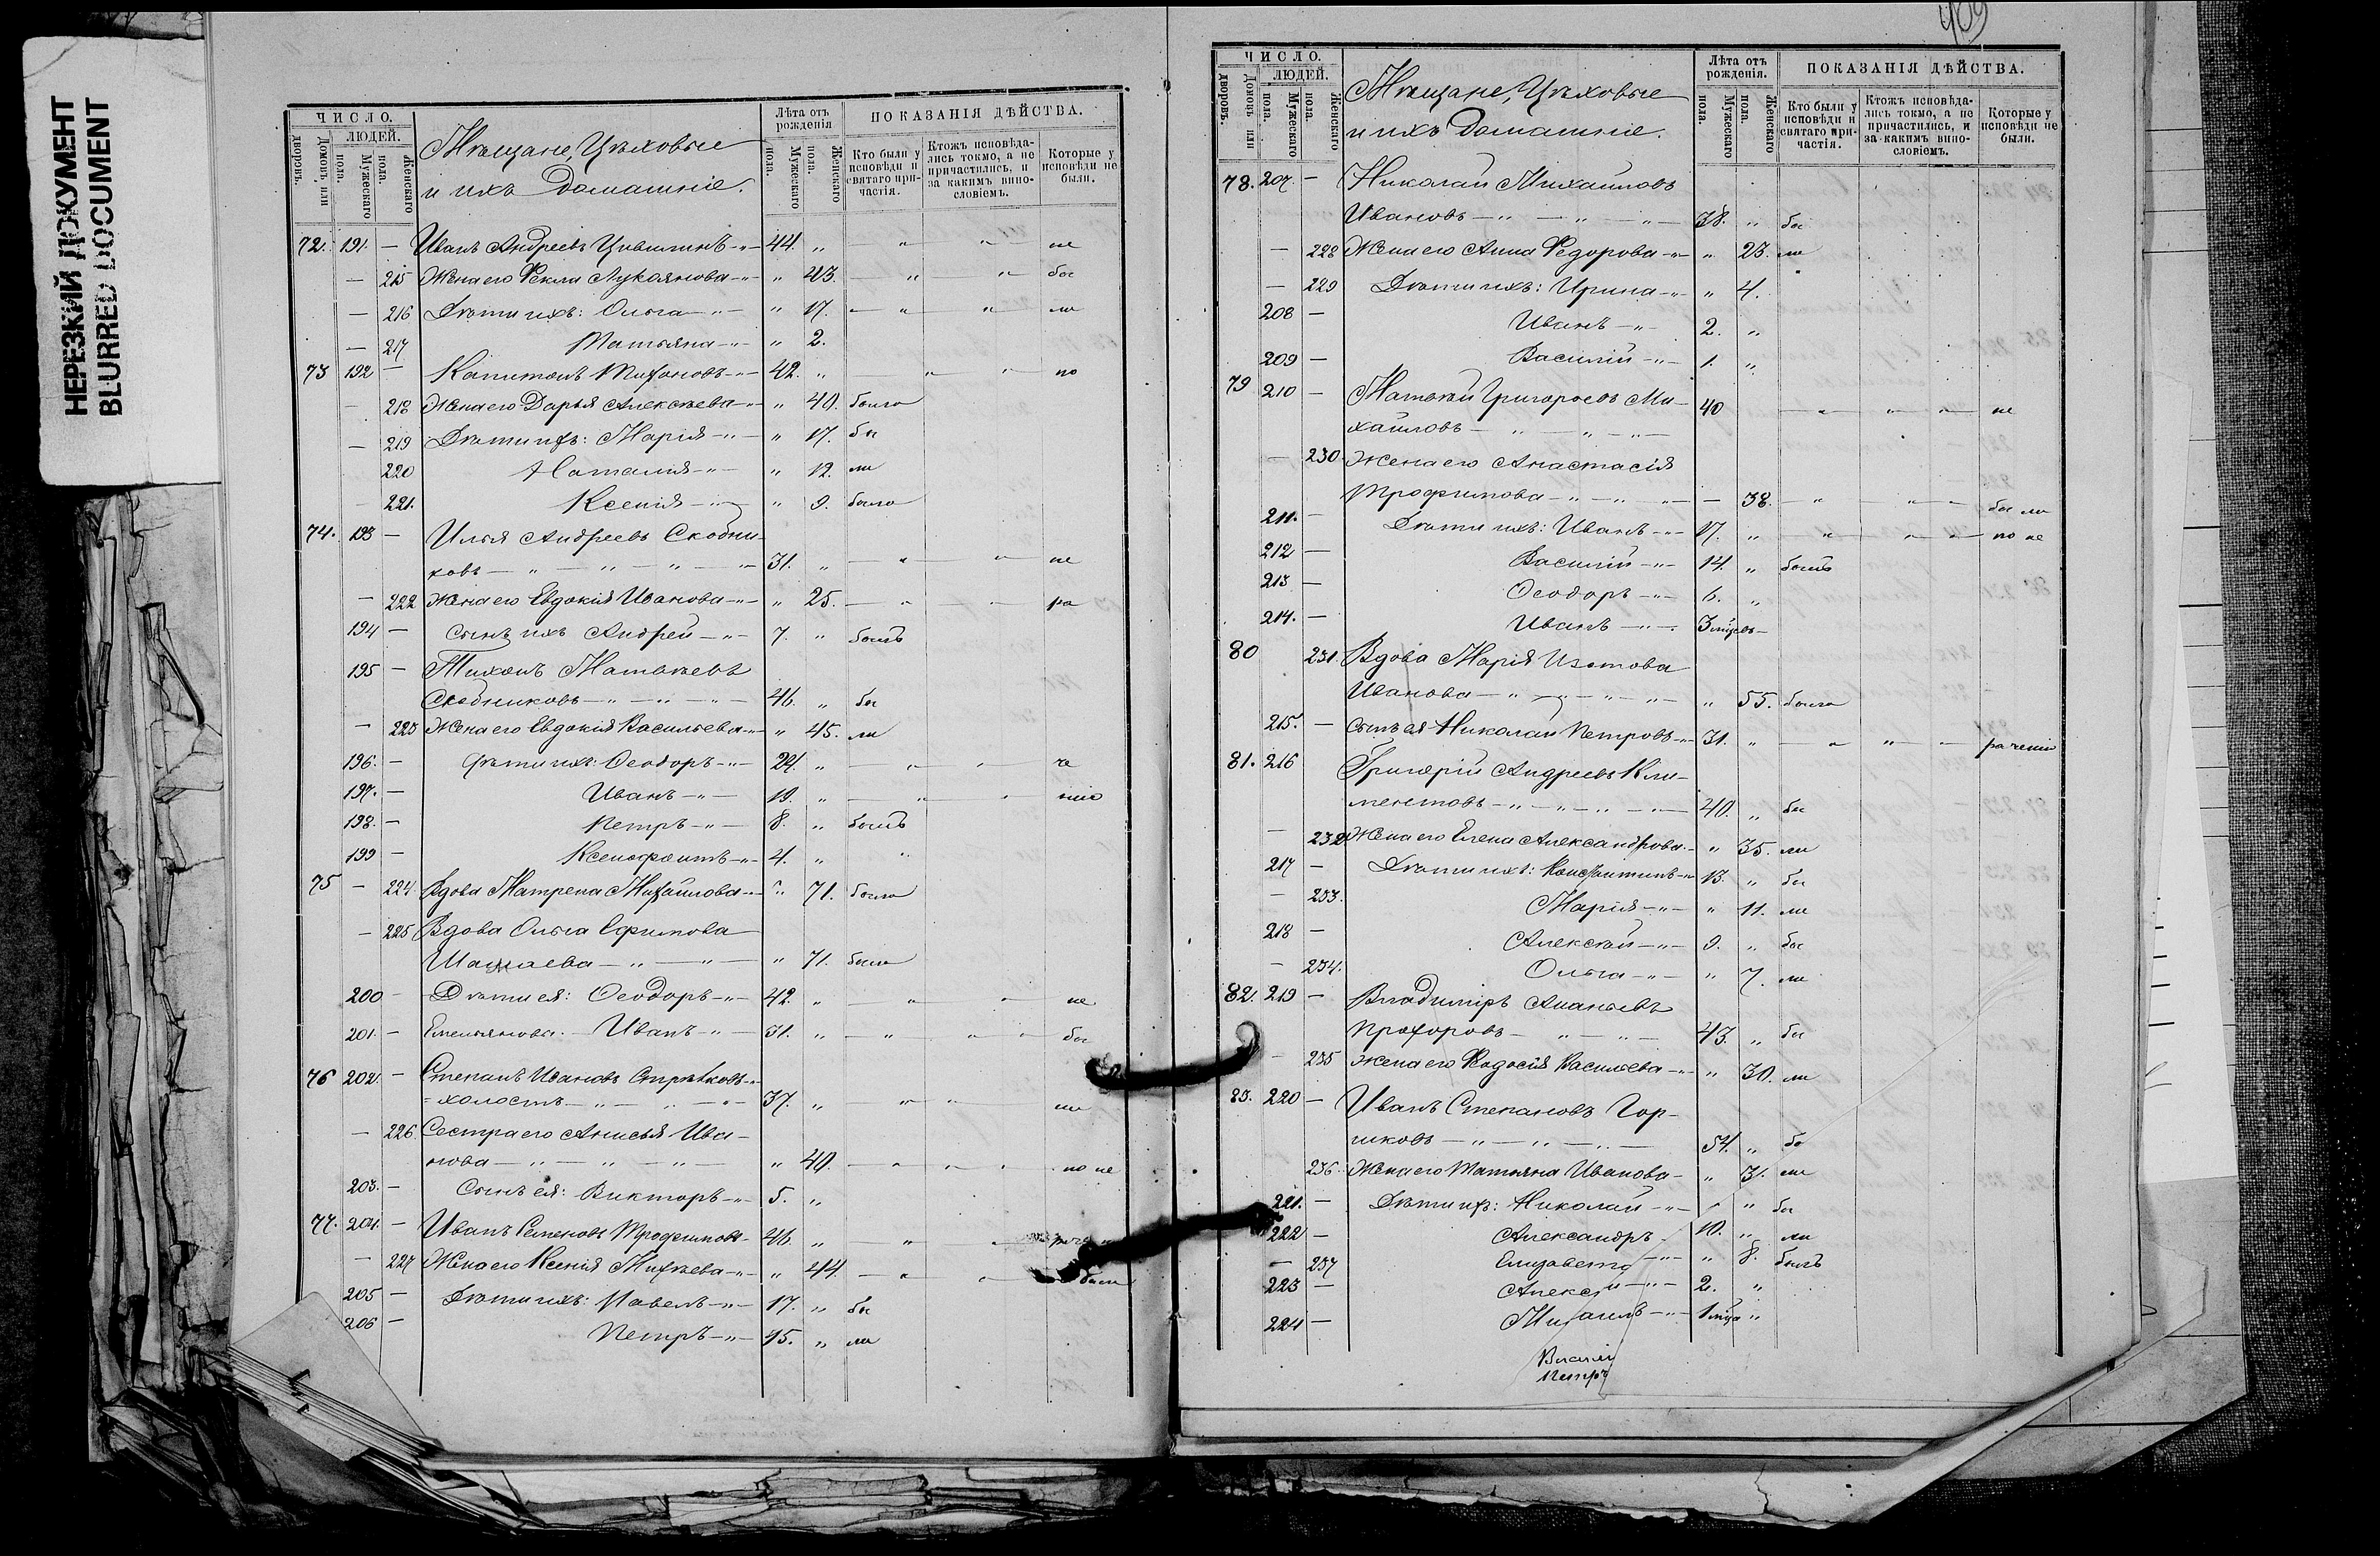 НЕРЕЗКИЙ ДОКУМЕНТ
BLURRED DOCUMENT
ЧИСЛО.
ЛЮДЕЙ.
Домовъ или дворовъ.
Мужескаго пола.
Женскаго пола.
Мѣщане, Цѣховые
и ихъ Домашніе.
Лѣта отъ рожденія
Мужескаго пола.
Женскаго пола.
ПОКАЗАНІЯ ДѢЙСТВА.
Кто были у исповѣди и святаго причастія.
Ктожъ исповѣдались токмо, а не причастились, и за какимъ винословіемъ.
Которые у исповѣди не были.
72. 191. — Иванъ Андреевъ 44. „ не
— 215 Жена его Фекла Лукоянова „ 43. бы
— 216 Дѣти ихъ: Ольга „ 17. ли
— 217 Татьяна „ 2.
73 192 — Капитонъ 42. „ по
— 218 Жена его Дарья Алексѣева „ 40. была
— 219 Дѣти ихъ: Марія „ 17. бы
220 Наталія „ 12. ли
221. Ксенія „ 9. была
74. 193 — Илья Андреевъ Скобни-
ковъ 31. „ не
— 222 Жена его Евдокія Иванова „ 25. ра
194 — Сынъ ихъ Андрей 7. „ былъ
195 — Тихонъ Матвѣевъ
Скобниковъ 46. „ бы
— 223 Жена его Евдокія Васильева „ 45. ли
196. — Дѣти ихъ: Ѳеодоръ 24. „ че
197. — Иванъ 19. „ нію
198. — Петръ 8. „ былъ
199 — Ксенофонтъ 4. „
75 — 224. Вдова Матрена Михайлова „ 71. была
— 225 Вдова Ольга Ефимова
„ 71. была
200 — Дѣти ея: Ѳеодоръ 42. „ не
201. — Емельянова. Иванъ 31. „ бы
76 202. — Степанъ Ивановъ Стрѣлковъ
холостъ 37. „ ли
— 226. Сестра его Анисья Ива-
нова „ 40. по не
203. — Сынъ ея: Викторъ 5. „
77. 204. — Иванъ Семеновъ Трофимовъ 46. „
— 227 Жена его Ксенія Михѣева „ 44. были
205 — Дѣти ихъ: Павелъ 17. „ бы
206 — Петръ 15. „ ли
409
ЧИСЛО.
ЛЮДЕЙ.
Домовъ или дворовъ.
Мужескаго пола.
Женскаго пола.
Мѣщане, Цѣховые
и ихъ Домашніе.
Лѣта отъ рожденія.
Мужескаго пола.
Женскаго пола.
ПОКАЗАНІЯ ДѢЙСТВА.
Кто были у исповѣди и святаго причастія.
Ктожъ исповѣдались токмо, а не причастились, и за какимъ винословіемъ.
Которые у исповѣди не были.
78. 207. — Николай Михайловъ
Ивановъ 38. „ бы
— 228 Жена его Анна Федорова „ 23. ли
— 229 Дѣти ихъ: Ирина „ 4.
208 — Иванъ 2. „
209 — Василій 1. „
79 210 — Матвѣй Григорьевъ Ми-
хайловъ 40 не
— 230 Жена его Анастасія
Трофимова — 38. были
211. — Дѣти ихъ: Иванъ 17. „ по не
212 — Василій 14. „ былъ
213 — Ѳеодоръ 6. „
214. — Иванъ 3 мѣсѣ
80 231. Вдова Марія Изотова
Иванова „ 55. была
215. — Сынъ ея Николай Петровъ 31. „ раченію
81. 216 Григорій Андреевъ Кли-
ментовъ 40. „ бы
— 232 Жена его Елена Александрова „ 35. ли
217 — Дѣти ихъ: Константинъ 13. „ бы
— 233. Марія „ 11. ли
218 — Алексѣй 9. „ бы
— 234. Ольга „ 7. ли
82. 219 — Владиміръ Ананьевъ
Прохоровъ 43. „ бы
— 235 Жена его Ѳеодосія Васильева „ 30. ли
83. 220 — Иванъ Степановъ Гор-
шковъ 54. „ бы
236. Жена его Татьяна Иванова „ 31. ли
221. — Дѣти ихъ: Николай „ бы
222 — Александръ 10. „ ли
— 237 Елизавета „ 8. былъ
223 — Алексѣй 2. „
224 — Михаилъ 1 мѣца „
Петръ